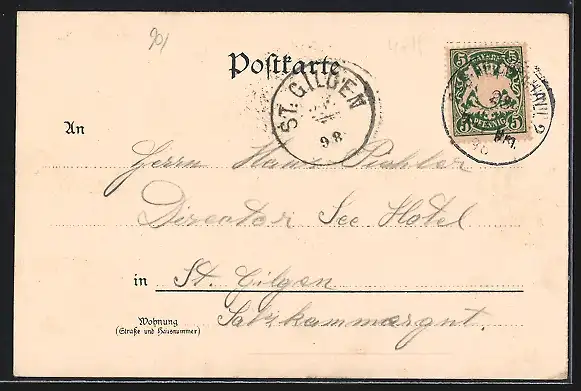 901
Postkarte
ST. GILGEN
98
BAYERN
5 5
PFENNIG
2
An
Herrn Hans Pichler
Director See Hotel
in St. Gilgen
Wohnung
(Straße und Hausnummer)
Salzkammergut.